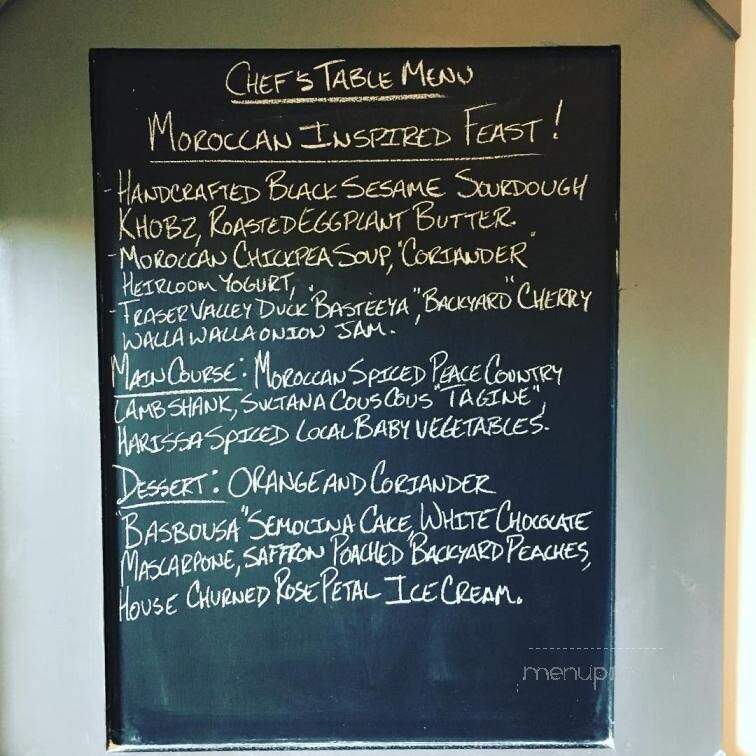 CHEF'S TABLE MENU
MOROCCAN INSPIRED FEAST!
- HANDCRAFTED BLACK SESAME SOURDOUGH
KHOBZ, ROASTED EGGPLANT BUTTER.
- MOROCCAN CHICKPEA SOUP, "CORIANDER"
HEIRLOOM YOGURT,
- FRASER VALLEY DUCK "BASTEEYA", "BACKYARD" CHERRY
WALLA WALLA ONION JAM.
MAIN COURSE: MOROCCAN SPICED PEACE COUNTRY
LAMB SHANK, SULTANA COUS COUS "TAGINE",
HARISSA SPICED LOCAL BABY VEGETABLES.
DESSERT: ORANGE AND CORIANDER
"BASBOUSA" SEMOLINA CAKE, WHITE CHOCOLATE
MASCARPONE, SAFFRON POACHED "BACKYARD PEACHES,
HOUSE CHURNED ROSE PETAL ICE CREAM.